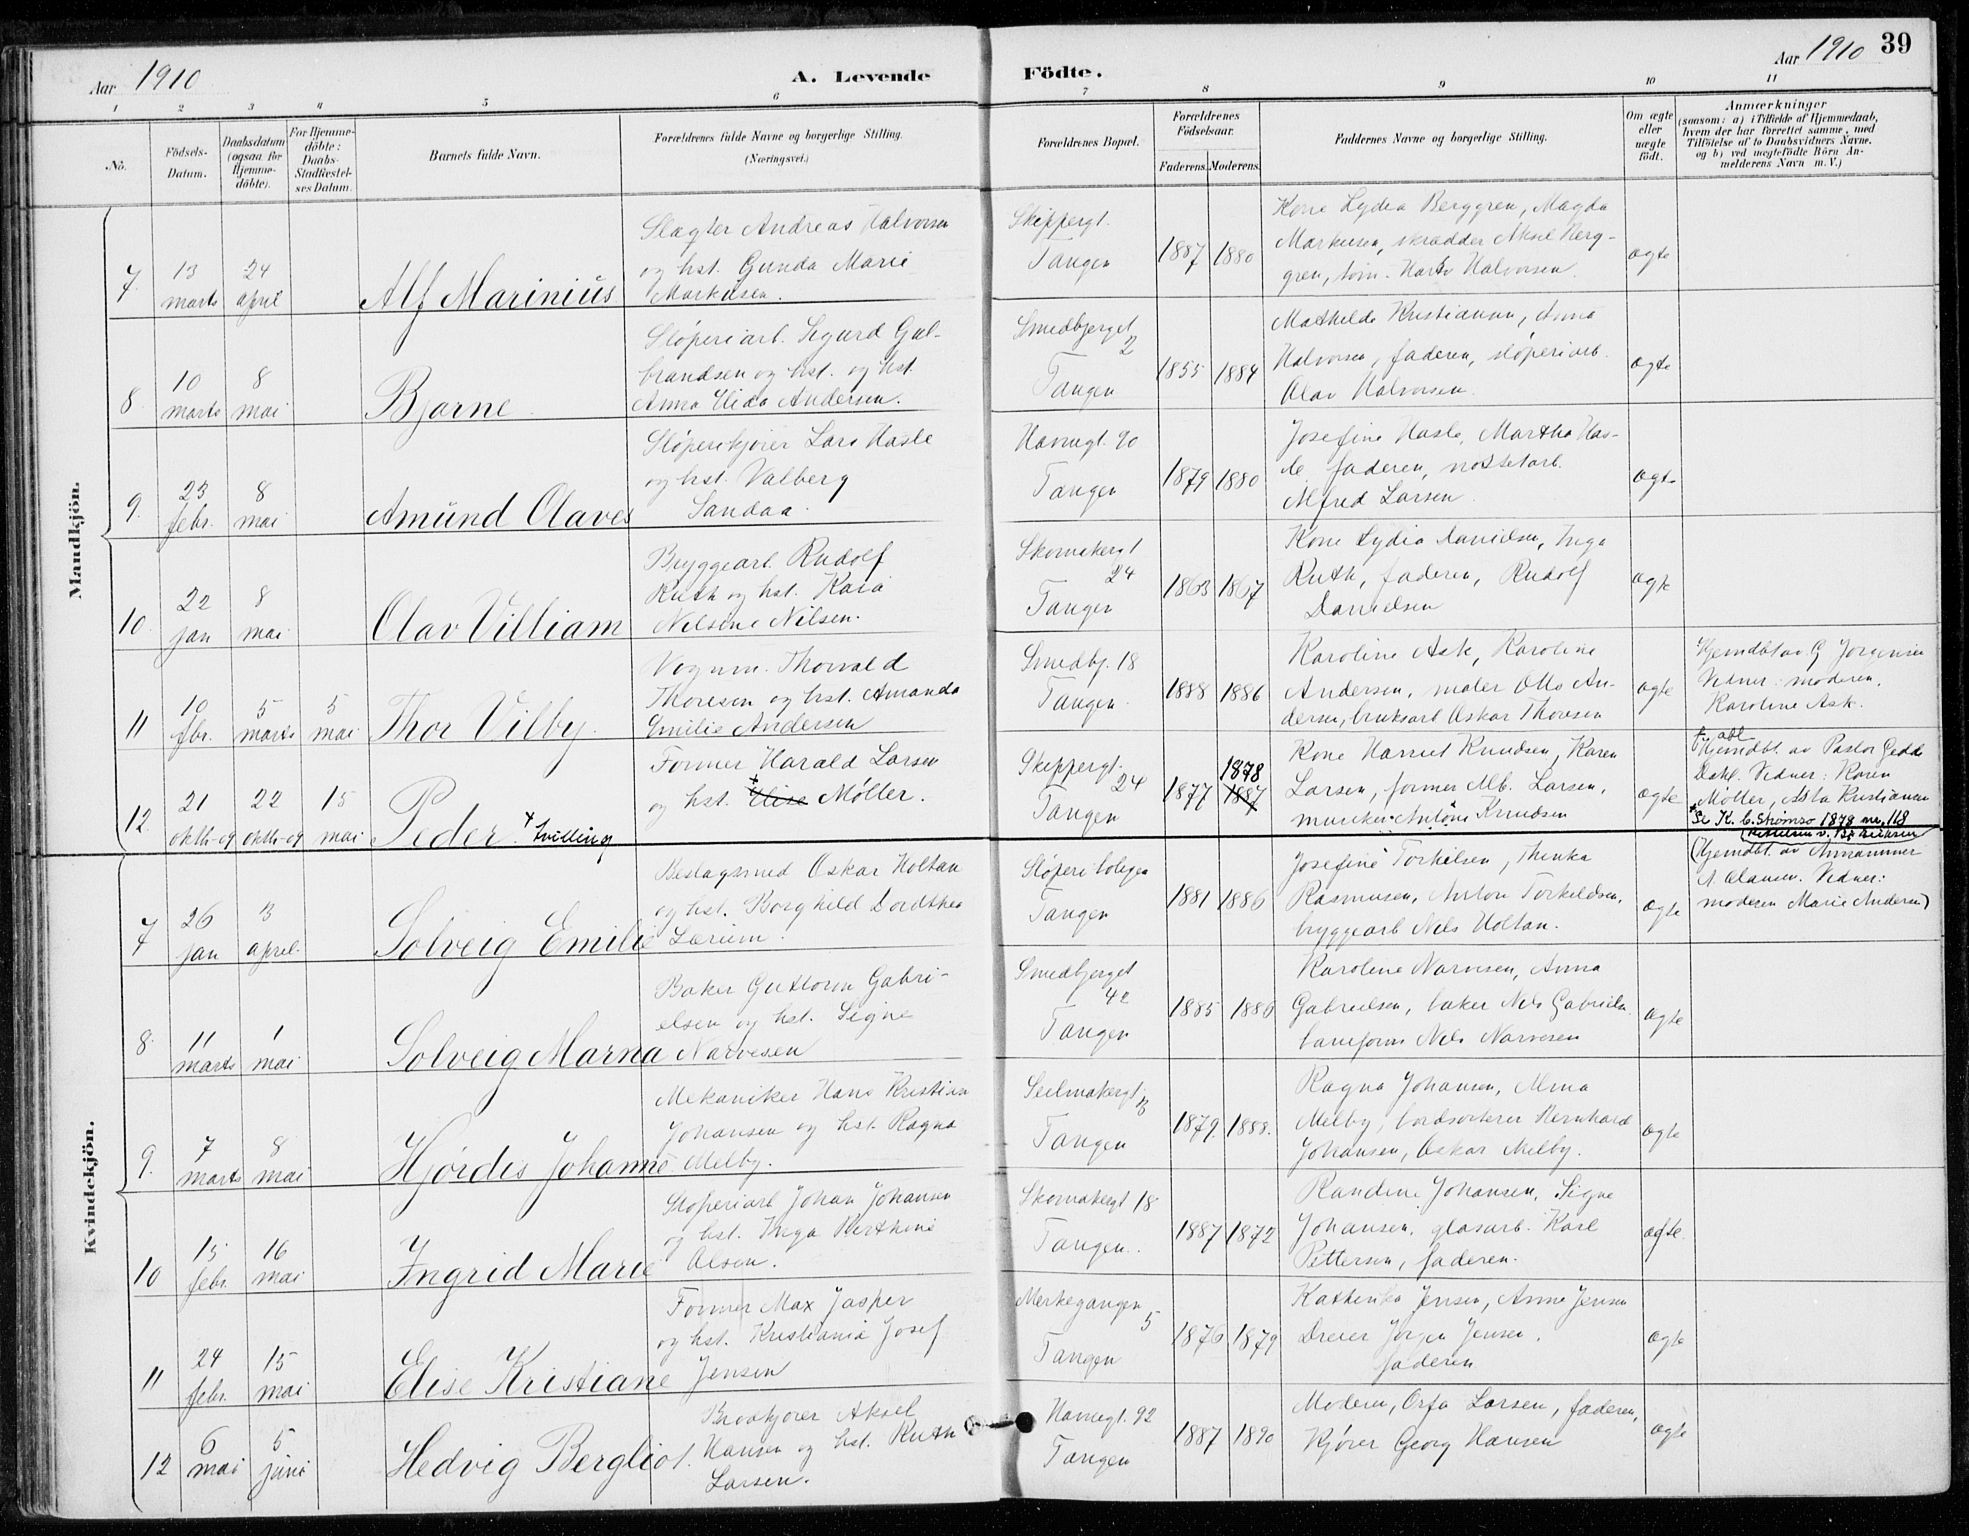 Aar 1910
A. Levende
Födte.
Aar 1910
39
1 2 3 4 5 6 7 8 9 10 11
No.
Födsels-
Datum.
Daabsdatum
(ogsaa for
Hjemme-
döbte).
For Hjemme-
döbte:
Daabs-
Stadfæstel-
ses Datum.
Barnets fulde Navn.
Forældrenes fulde Navne og borgerlige Stilling.
(Næringsvei.)
Forældrenes Bopæl.
Forældrenes
Födselsaar.
Faderens. Moderens.
Faddernes Navne og borgerlige Stilling.
Om ægte
eller
uægte
födt.
Anmærkninger
(saasom: a) i Tilfælde af Hjemmedaab,
hvem der har forrettet samme, med
Tilföielse af to Daabsvidners Navne,
og b) ved uægtefödte Börn An-
melderens Navn m. V.)
Mandkjön.
7
13
marts
24
april
Alf Marinius
Slagter Andreas Halvorsen
og hst. Gunda Marie
Markusen.
Skippergt.
Tangen
1887 1880
Kone Lydia Berggren, Magda
Markusen, skrædder Aksel Berg-
gren, tøm. Halvorsen.
ægte
8
10
marts
8
mai
Bjarne
Støperiarb. Sigurd Gul-
brandsen og hst. og hst.
Anna Andersen.
Smedbjerget
2
Tangen
1855 1884
Mathilde Kristiansen, Anna
Halvorsen, faderen, støperiarb.
Olav Halvorsen.
ægte
9.
23
febr.
8
mai
Amund Olaves
Støperikjører Lars Hasle
og hst. Valberg
Sandaa.
Havnegt. 90
Tangen
1879 1880
Josefine Hasle, Martha Has-
le, faderen,
Alfred Larsen.
ægte
10.
22
jan
8
mai
Olav Villiam
Bryggearb. Rudolf
Ruth og hst. Kaia
Nilsine Nilsen.
Skomakergt
24
Tangen
1863 1867
Kone Lydia Danielsen, Inga
Ruth, faderen, Rudolf
Danielsen
ægte
11
10
fbr.
5
marts
5
mai
Thor Vilby.
Vognm. Thorvald
Thoresen og hst. Amanda
Emilie Andersen
Smedbj. 18
Tangen.
1888 1886
Karoline Ask, Karoline
Andersen, maler Otto An-
dersen, bruksarb Oskar Thoresen
ægte
Hjemdbt av G Jørgensen
Vidner: moderen,
Karoline Ask.
12
21
okth-09
22
okth-09
15
mai
Peder. + tvilling
Former Harald Larsen
og hst. + Elise Møller.
Skippergt.
24
Tangen
1877 1878
1887
Kone Harriet Knudsen, Karen
Larsen, former Alb. Larsen,
musiker Anton Knudsen
ægte
Hjemdbt. av Pastor Gedde
Dahl. Vidner: Karen
Møller, Asta Kristiansen
+ Se K. b. Strømsø 1878 nr. 118
Kvindekjön.
7
26
jan
3
april.
Solveig Emilie
Beslagsmed Oskar Holtan
og hst. Borghild Dordthea
Lærum.
Støperiboligen
Tangen
1881 1886
Josefine Torkilsen, Thinka
Rasmusen, Anton Torkildsen,
bryggearb Nils Holtan.
ægte
(Hjemdbt. av
Vidner:
moderen Marie Andersen)
8.
11
marts
1
mai
Solveig Marna
Baker Guttorm Gabri-
elsen og hst. Signe
Narvesen
Smedbjerget
42
Tangen
1885 1886
Karoline Narvesen, Anna
Gabrielsen, baker Nils Gabrielsen
baneform Nils Narvesen
ægte
9.
7
marts
8
mai
Hjørdis Johanne
Mekaniker Hans Kristian
Johansen og hst. Ragna
Melby.
Seilmakergt.
Tangen
1879. 1888.
Ragna Johansen, Alma
Melby, bordsorterer Bernhard
Johansen, Oskar Melby.
ægte
10
15
febr.
16
mai
Ingrid Marie
Støperiarb Johan Johansen
og hst. Inga Berthine
Olsen.
Skomakergt 18
Tangen.
1887 1872
Randine Johansen, Signe
Johansen, glasarb. Karl
Pettersen, faderen.
ægte.
11
24
febr.
15
mai
Elise Kristiane
Former Max Jasper
og hst. Kristiania Josef
Jensen
Merkegangen
5
Tangen
1876 1879
Kathinka Jensen, Anne Jensen
Dreier Jørgen Jensen.
faderen
ægte
12
6
mai
5
juni
Hedvig Bergliot.
Brødkjører Aksel
Hansen og hst. Ruth
Larsen.
Havnegt. 92
Tangen
1887 1890
Moderen, Orfa Larsen, faderen,
Kjører Georg Hansen
ægte